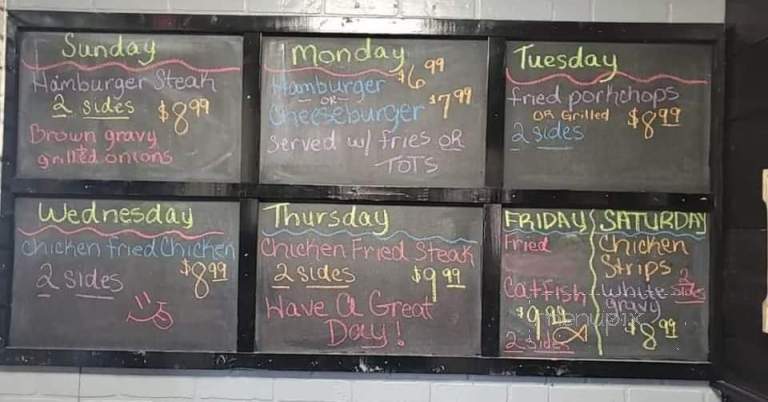 Sunday
Hamburger Steak
2 sides $8.99
Brown gravy
+
grilled onions
Monday
Hamburger $6.99
OR
Cheeseburger $7.99
Served w/ fries OR
TOTS
Tuesday
fried porkchops
OR Grilled $8.99
2 sides
Wednesday
Chicken fried Chicken
2 sides $8.99
Thursday
Chicken Fried Steak
2 sides $9.99
Have A Great
Day!
FRIDAY
Fried
Catfish
$9.99
2 sides
SATURDAY
Chicken
Strips
White 2 sides
gravy
$8.99
menupix